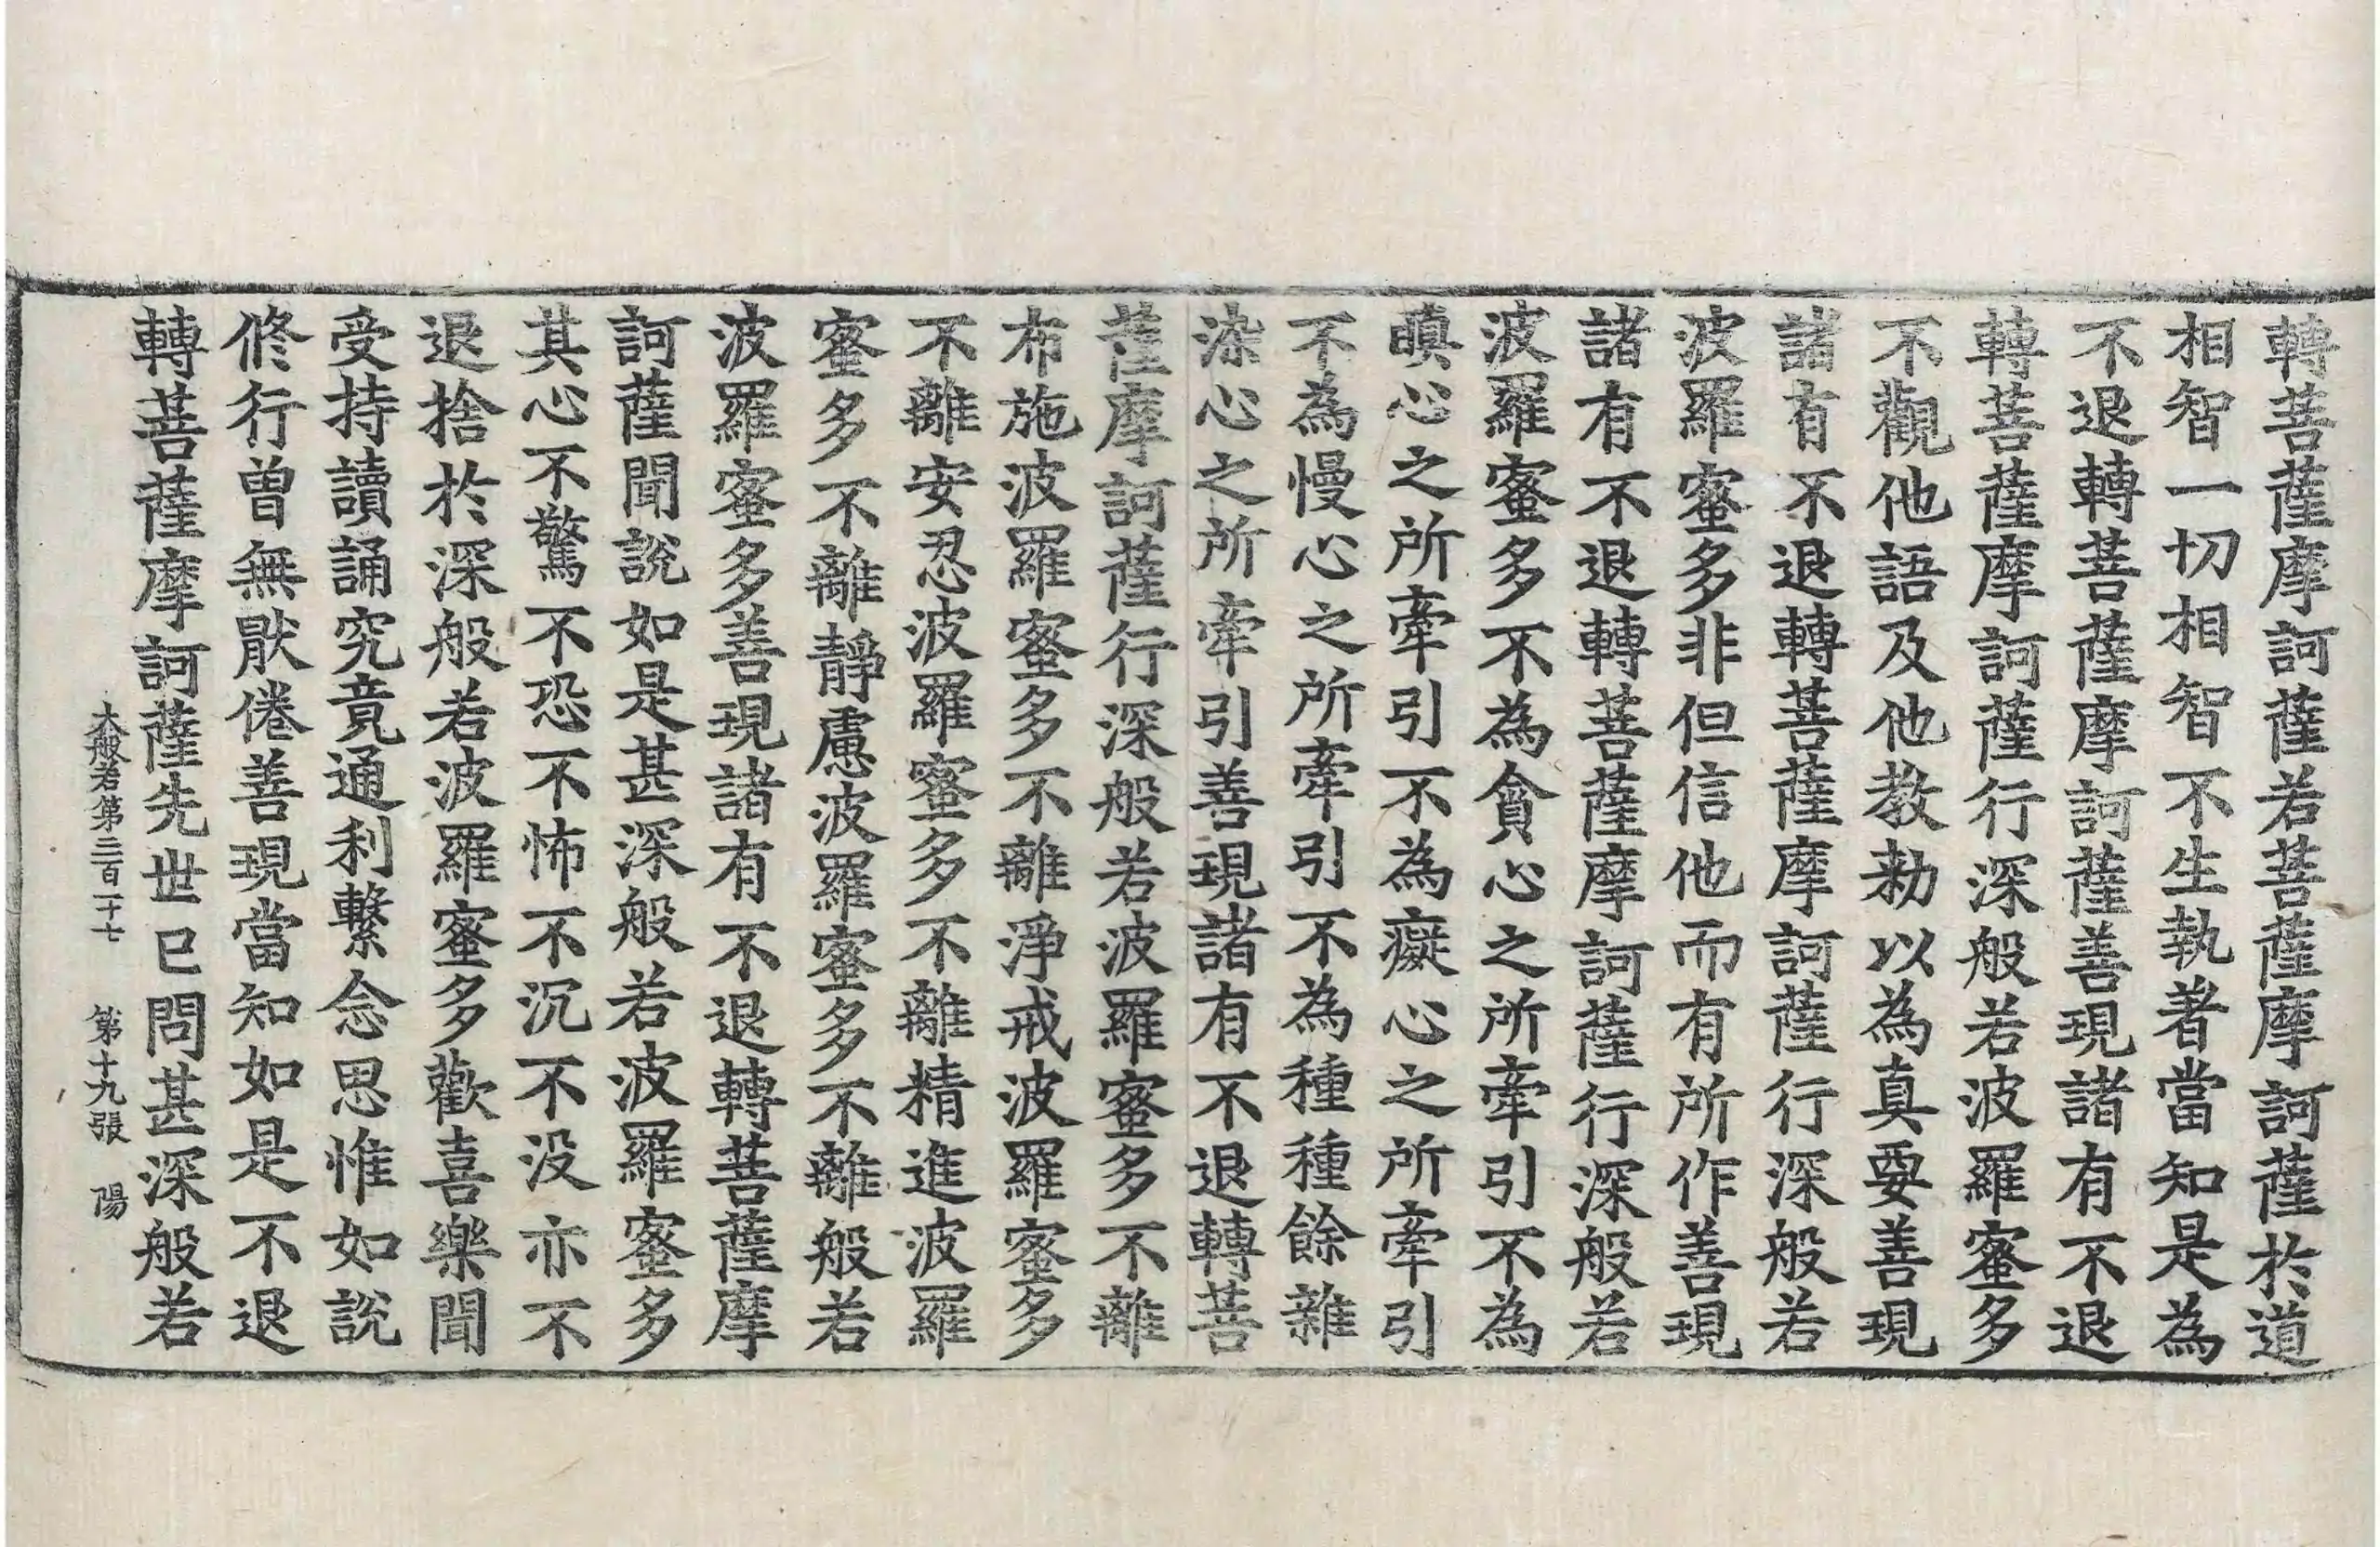 轉菩薩摩訶薩若菩薩摩訶薩於道
相智一切相智不生執著當知是為
不退轉菩薩摩訶薩善現諸有不退
轉菩薩摩訶薩行深般若波羅蜜多
不觀他語及他教勑以為真要善現
諸有不退轉菩薩摩訶薩行深般若
波羅蜜多非但信他而有所作善現
諸有不退轉菩薩摩訶薩行深般若
波羅蜜多不為貪心之所牽引不為
瞋心之所牽引不為癡心之所牽引
不為慢心之所牽引不為種種餘雜
染心之所牽引善現諸有不退轉菩
薩摩訶薩行深般若波羅蜜多不離
布施波羅蜜多不離淨戒波羅蜜多
不離安忍波羅蜜多不離精進波羅
蜜多不離靜慮波羅蜜多不離般若
波羅蜜多善現諸有不退轉菩薩摩
訶薩聞說如是甚深般若波羅蜜多
其心不驚不恐不怖不沉不没亦不
退捨於深般若波羅蜜多歡喜樂聞
受持讀誦究竟通利繫念思惟如說
修行曾無猒倦善現當知如是不退
轉菩薩摩訶薩先世已問甚深般若
大般若第三百二十七 第十九張 陽